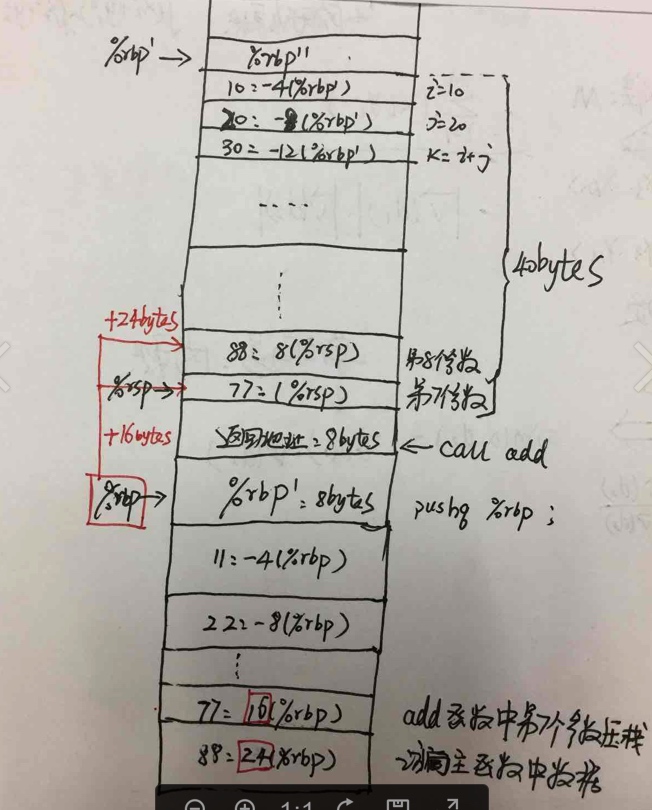 %rbp' → %rbp''
10: -4(%rbp') i=10
20: -8(%rbp') j=20
30: -12(%rbp') k=i+j
....
40bytes
+24bytes
88: 8(%rsp) 第8个参数
%rsp → 77: (%rsp) 第7个参数
+16bytes
返回地址: 8bytes ← call add
%rbp → %rbp': 8bytes pushq %rbp;
11: -4(%rbp)
22: -8(%rbp)
77= 16(%rbp) add函数中第7个参数压栈
88= 24(%rbp) 主函数中数据
1:1